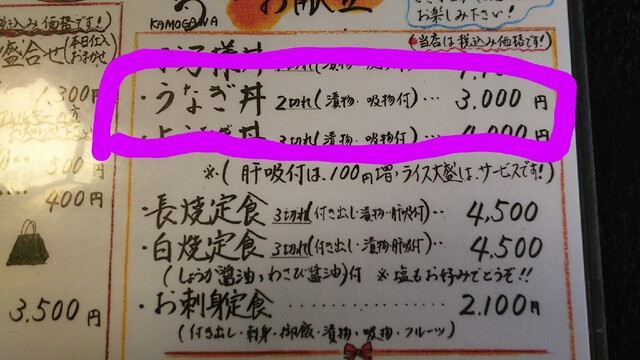 KAMOGAWA
お献立
お楽しみ下さい!
税込み価格です!
●当店は税込み価格です!
盛合せ(本日仕入おまかせ)
・うなぎ丼 2切れ(漬物・吸物付)… 3,000円
3切れ(漬物・吸物付)… 4,000円
※(肝吸付は、100円増、ライス大盛は、サービスです!)
・長焼定食 3切れ(付き出し・漬物・肝吸付)… 4,500
・白焼定食 3切れ(付き出し・漬物・肝吸付)… 4,500
(しょうが醤油、わさび醤油)付 ※塩もお好みでどうぞ!!
・お刺身定食 ………… 2,100円
(付き出し・刺身・御飯・漬物・吸物・フルーツ)
1,300円
500円
400円
3,500円